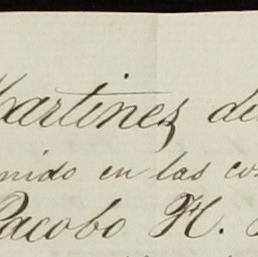 Martinez de
nido en las co
Jacobo H.